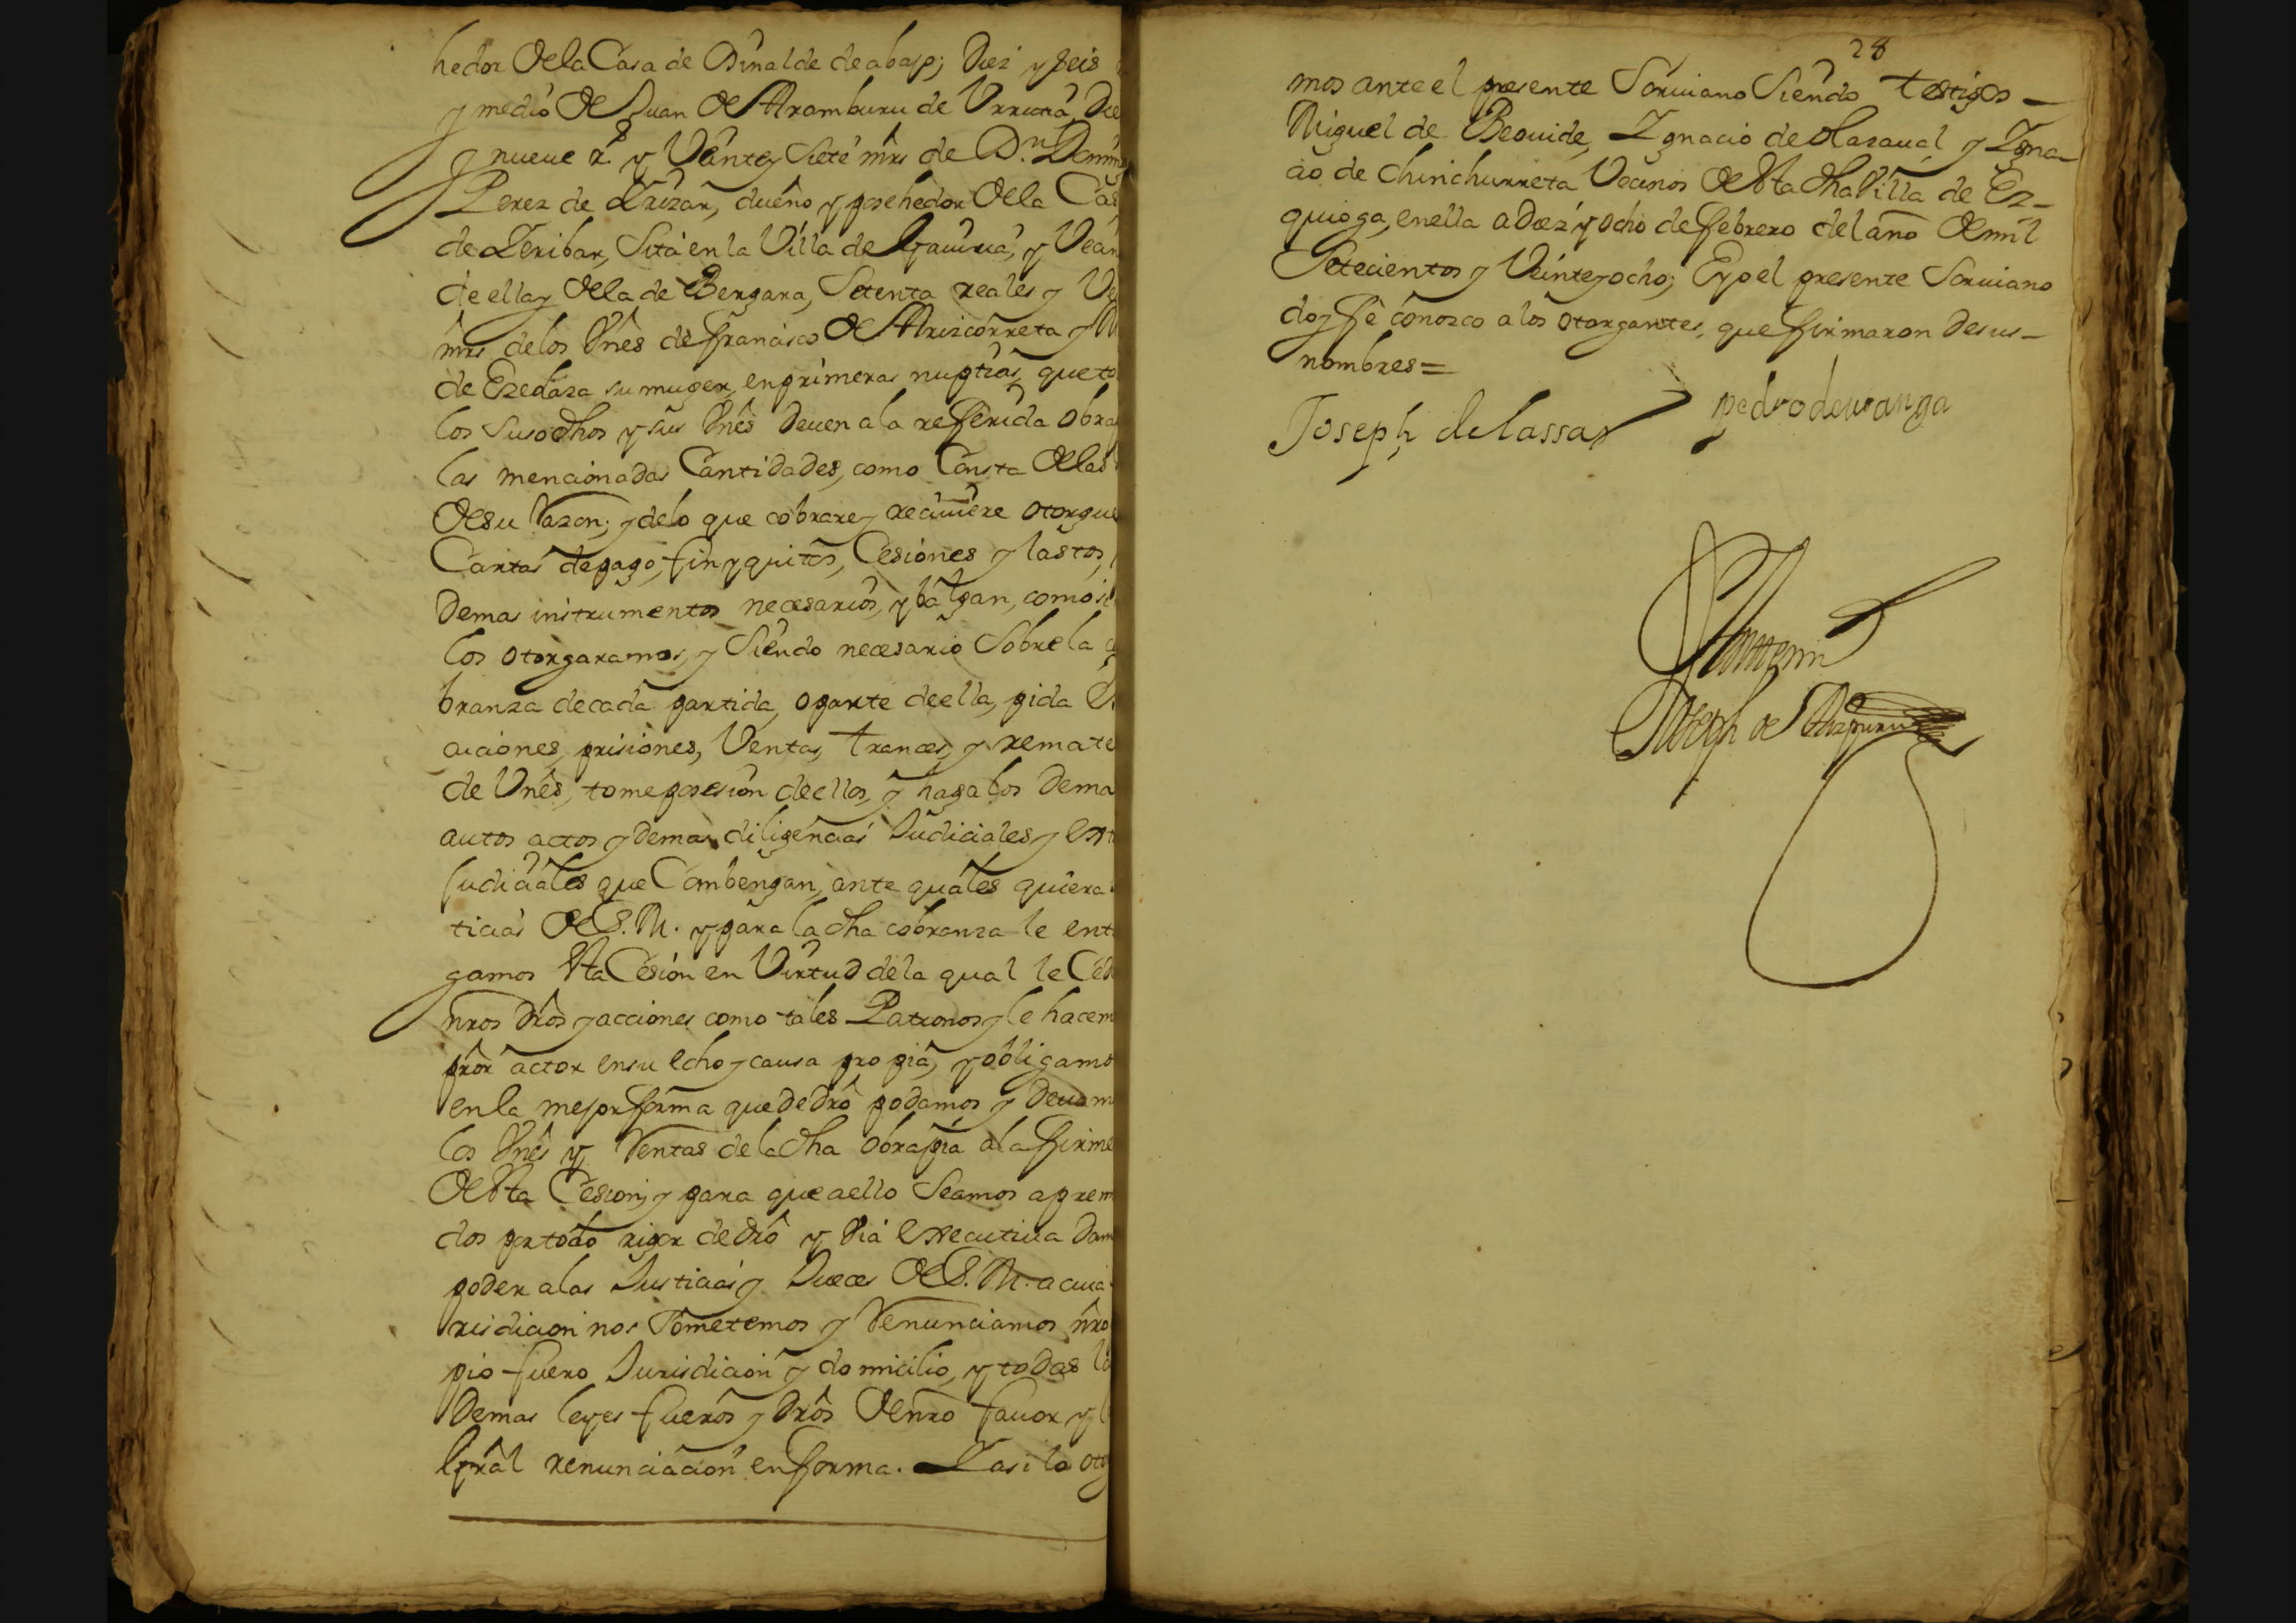 hedor dela Casa de Binalde deabajo; Diez y seis
y medio de Juan de Aramburu de Urruna, Die
y nueue r.s y Veinte y Siete mrs de D.n Domin
Perez de Irizar, dueño y posehedor dela Cas
de Leribar, Sita en la Villa de Gauiria, y Vecin
de ella y dela de Bergara, Setenta reales y Ve
mrs delos Vnês de Francisco de Arizcorreta y M
de Ezedara su muger, en primeras nuptias, que to
los Susodhos y sus Vnês Deuen ala referida obra
las mencionadas Cantidades, como Consta delas
desu Razon; y delo que cobrare y reciuiere otorgue
Cartas de pago, fin y quitos, Cesiones y lastos,
Demas instrumentos necesarios, y balgan, como si
los otorgaramos, y Siendo necesario Sobre la
branza de cada partida, o parte de ella, pida
cuciones, prisiones, Ventas, trances, y remate
de Vnês, tome posesion de ellos, y haga los Dema
autos actos y Demas diligencias Judiciales y Ext
judiciales que Combengan, ante quales quiera
ticias de S. M. y para la dha cobranza le ent
gamos esta Cesion en Virtud dela qual le Ced
nros drôs y acciones como tales Patronos y le hacem
prôr actor en su echo y causa propia, y obligamo
en la mejor forma que de drô podamos y Deuam
los Vnês y Rentas dela dha obrapia ala firme
de esta Cesion, y para que aello Seamos aprem
dos por todo rigor de drô y Via Executiua Dam
poder alas Justicias y Jueces de S. M. a cuia
risdicion nos Sometemos y Renunciamos nrô
pio fuero Jurisdicion y domicilio, y todas la
Demas leyes fueros y drôs de nrô fauor y l
Gral renunciacion en forma. Y asi lo oto
28
mos ante el presente Scriuano Siendo testigos –
Miguel de Beouide, Ignacio de Olazaual, y Igna–
cio de Chinchurreta Vecinos de esta dha Villa de Ez–
quioga, en ella a Diez y ocho de febrero del año de mil
Setecientos y Veinte y ocho; E yo el presente Scriuano
doy fê conozco alos otorgantes, que firmaron de sus–
nombres =
Joseph de lassa
pedro de uranga
Ante mi
Joseph de Aizpuru